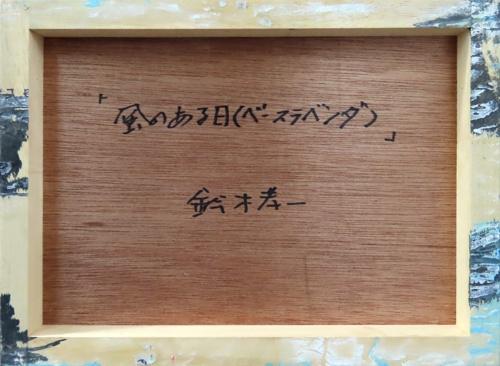 「風のある日(ベースラベンダ)」
鈴木寿一